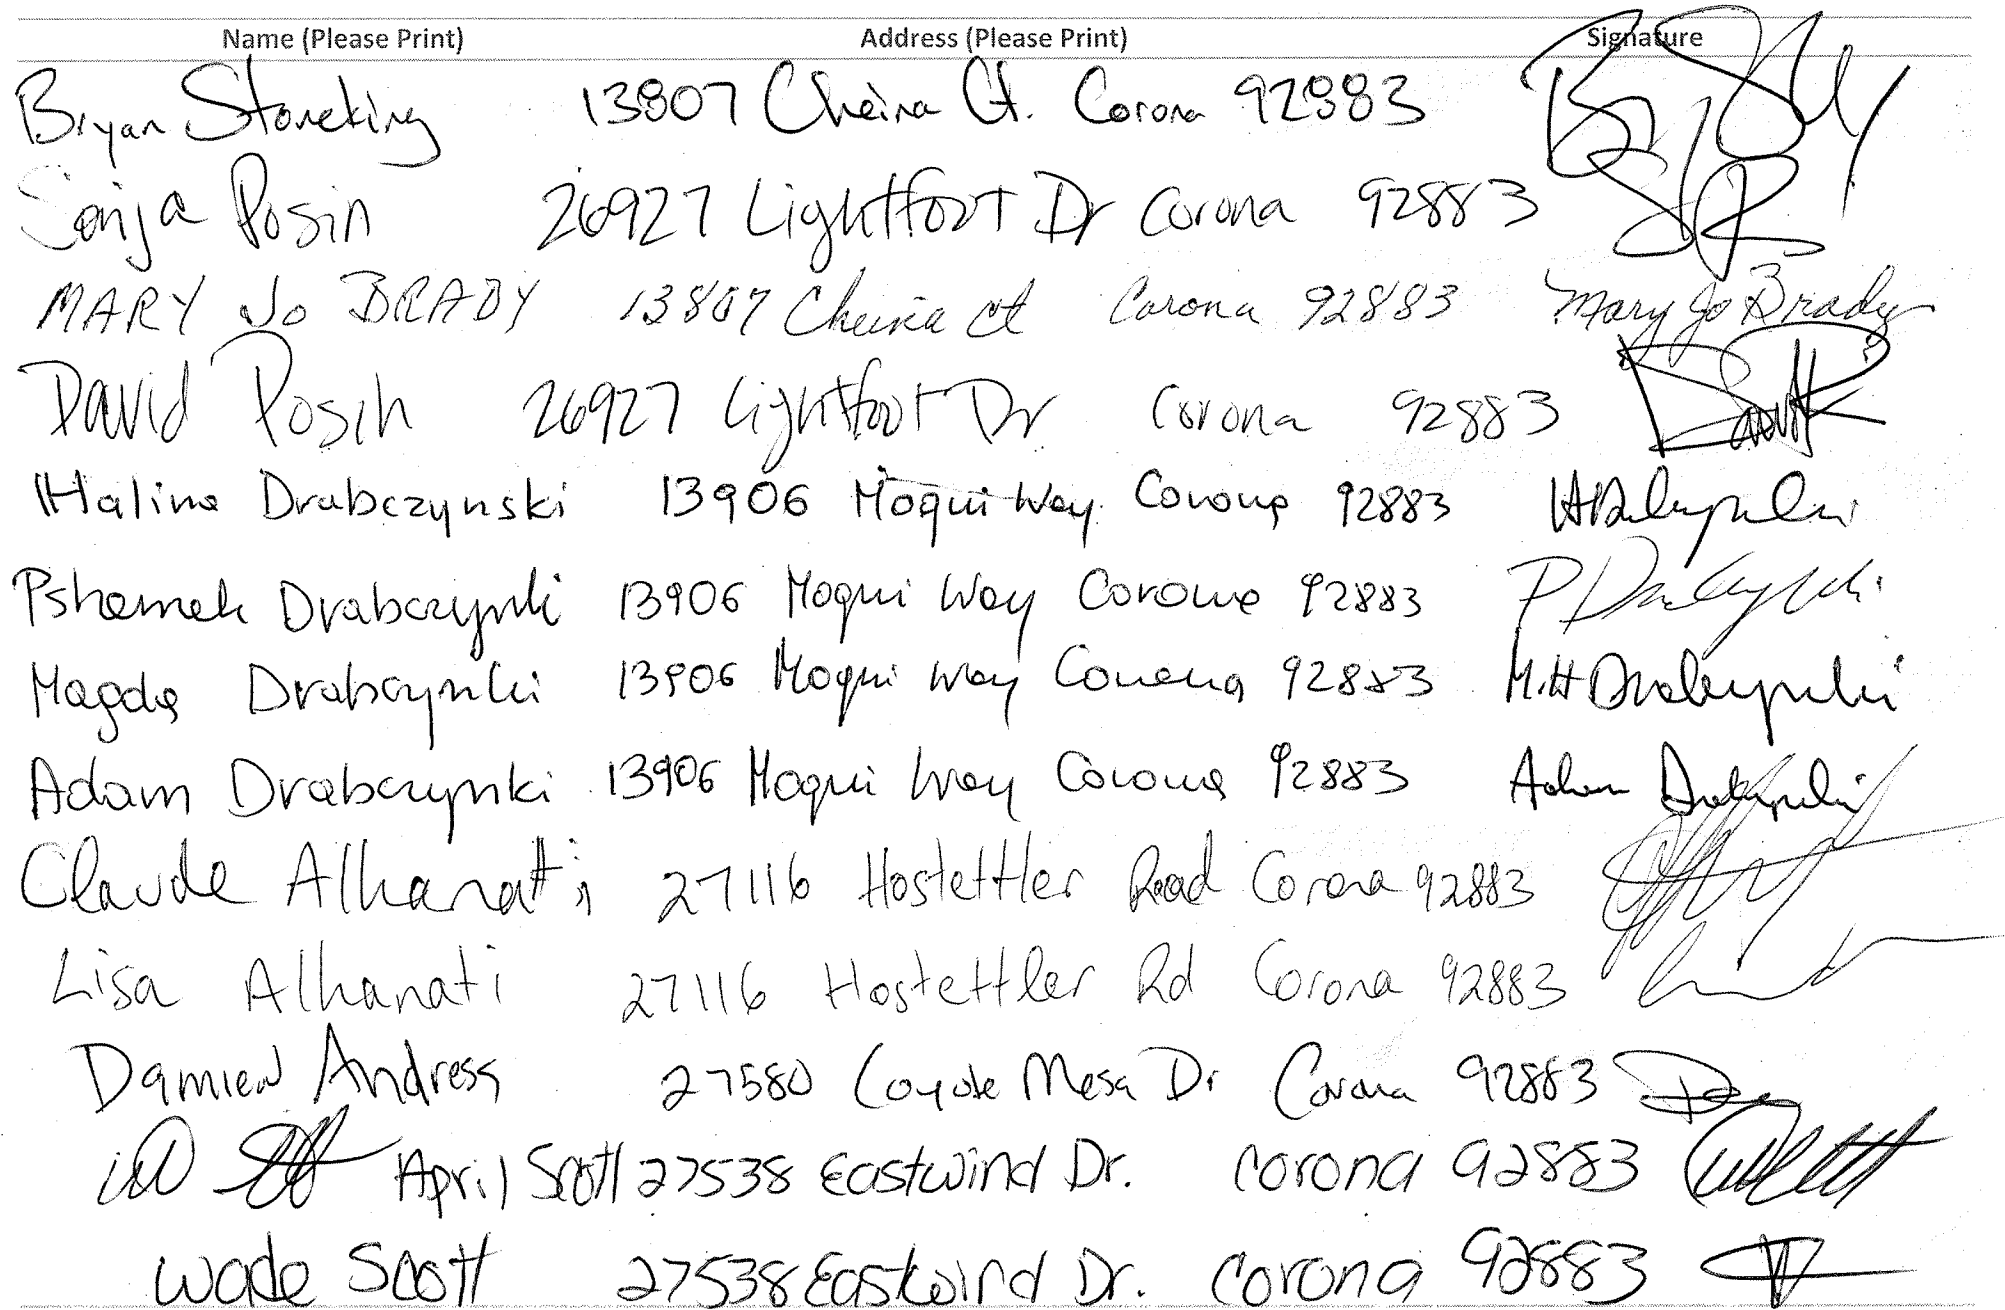 Name (Please Print) Address (Please Print) Signature
Bryan Stoneking 13807 Cheina Ct. Corona 92883
Sonja Posin 26927 Lightfoot Dr Corona 92883
MARY Jo BRADY 13807 Cheina ct Corona 92883 Mary Jo Brady
David Posin 26927 Lightfoot Dr Corona 92883
Halina Drabczynski 13906 Moqui Way Corona 92883
Pshemek Drabczynski 13906 Moqui Way Corona 92883 P Drabczynski
Magda Drabczynski 13906 Moqui Way Corona 92883 M.H Drabczynski
Adam Drabczynski 13906 Moqui Way Corona 92883 Adam Drabczynski
Claude Alhanati 27116 Hostettler Road Corona 92883
Lisa Alhanati 27116 Hostettler Rd Corona 92883
Damien Andress 27580 Coyote Mesa Dr Corona 92883
April Scott 27538 Eastwind Dr. Corona 92883
Wade Scott 27538 Eastwind Dr. Corona 92883